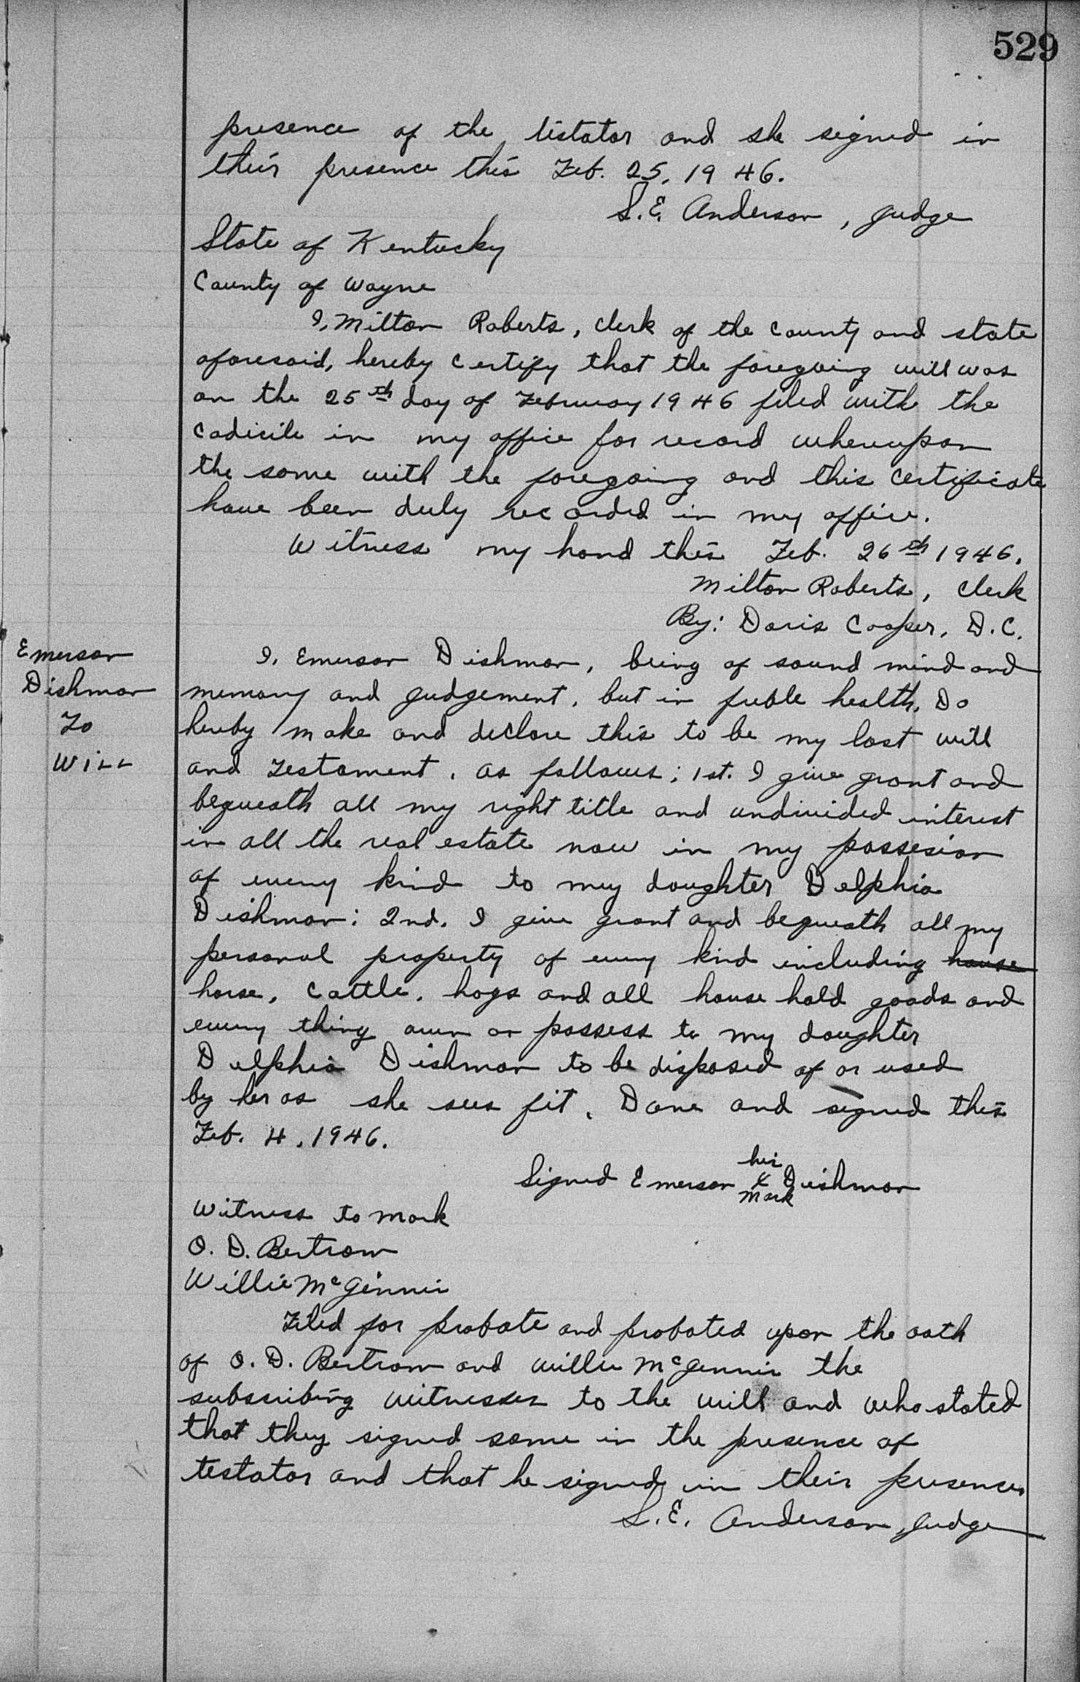 529
presence of the testator and she signed in
their presence this Feb. 25, 1946.
S. E. Anderson, Judge
State of Kentucky
County of Wayne
I, Milton Roberts, Clerk of the County and state
aforesaid, hereby certify that the foregoing will was
on the 25th day of February 1946 filed with the
codicile in my office for record whereupon
the same with the foregoing and this certificate
have been duly recorded in my office.
Witness my hand this Feb. 26th 1946.
Milton Roberts, Clerk
By: Doris Cooper, D.C.
Emerson
Dishman
To
Will
I, Emerson Dishman, being of sound mind and
memory and judgement, but in feeble health, Do
hereby make and declare this to be my last will
and Testament, as follows; 1st. I give grant and
bequeath all my right title and undivided interest
in all the real estate now in my possesion
of every kind to my daughter Delphia
Dishman: 2nd. I give grant and bequeath all my
personal property of every kind including house
horse, cattle, hogs and all house hold goods and
every thing own or possess to my daughter
Delphia Dishman to be disposed of or used
by her as she sees fit. Done and signed this
Feb. 4, 1946.
Signed Emerson his x mark Dishman
Witness to mark
O. D. Bertram
Willie McGinnis
Filed for probate and probated upon the oath
of O. D. Bertram and Willie McGinnis the
subscribing witnesses to the will and who stated
that they signed same in the presence of
testator and that he signed in their presence.
S. E. Anderson, Judge